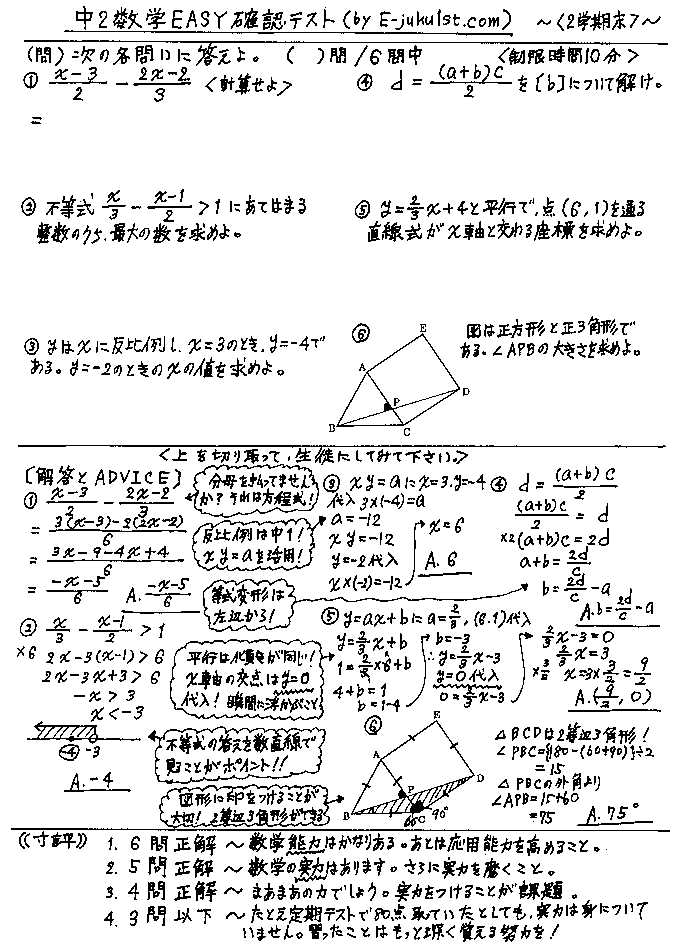 中2数学EASY確認テスト(by E-juku1st.com) ～<2学期末>～
(問) 次の各問いに答えよ。 ( )問/6問中 <制限時間10分>
① x-3/2 - 2x-2/3 <計算せよ>
=
② 不等式 x/3 - x-1/2 > 1 にあてはまる
整数のうち、最大の数を求めよ。
③ yはxに反比例し、x=3のとき、y=-4で
ある。y=-2のときのxの値を求めよ。
④ d = (a+b)c/2 を[b]について解け。
⑤ y=2/3x+4と平行で、点(6,1)を通る
直線式がx軸と交わる座標を求めよ。
⑥
図は正方形と正3角形で
ある。∠APBの大きさを求めよ。
A
B
C
D
E
P
<上を切り取って、生徒にしてみて下さい。>
[解答とADVICE]
① x-3/2 - 2x-2/3
= 3(x-3)-2(2x-2)/6
= 3x-9-4x+4/6
= -x-5/6
A. -x-5/6
分母を払ってません
か？それは方程式！
反比例は中1！
xy=aを活用！
等式変形は
左辺から！
② x/3 - x-1/2 > 1
×6 2x-3(x-1)>6
2x-3x+3>6
-x>3
x<-3
-4 -3
A. -4
平行は傾きが同じ！
x軸の交点はy=0
代入！瞬間に浮かぶこと
不等式の答えを数直線で
見ることがポイント！！
図形に印をつけることが
大切！2等辺3角形ができる
③ xy=aにx=3, y=-4
代入 3×(-4)=a
a=-12
xy=-12
y=-2代入
x×(-2)=-12
x=6
A. 6
④ d = (a+b)c/2
(a+b)c/2 = d
×2 (a+b)c=2d
a+b=2d/c
b=2d/c-a
A. b=2d/c-a
⑤ y=ax+bにa=2/3, (6.1)代入
y=2/3x+b
1=2/3×6+b
4+b=1
b=1-4
b=-3
∴y=2/3x-3
y=0代入
0=2/3x-3
2/3x-3=0
2/3x=3
×3/2 x=3×3/2=9/2
A. (9/2, 0)
⑥
A
B
C
D
E
P
60° 90°
△BCDは2等辺3角形！
∠PBC={180-(60+90)}÷2
=15
△PBCの外角より
∠APB=15+60
=75
A. 75°
((寸評))
1. 6問正解～数学能力はかなりある。あとは応用能力を高めること。
2. 5問正解～数学の実力はあります。さらに実力を磨くこと。
3. 4問正解～まあまあの力でしょう。実力をつけることが課題。
4. 3問以下～たとえ定期テストで80点取っていたとしても、実力は身について
いません。習ったことはもっと深く覚える努力を！